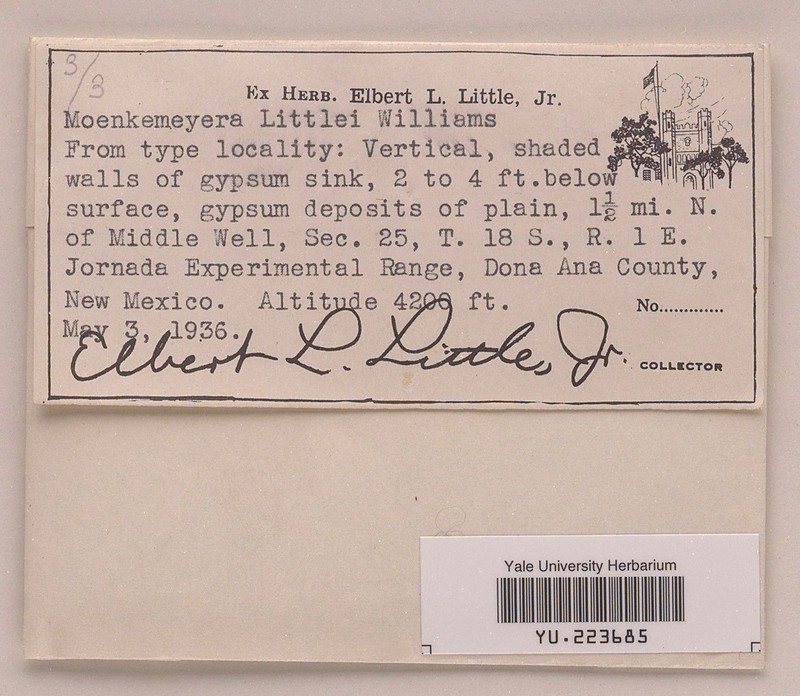 3/3
Ex Herb. Elbert L. Little, Jr.
Moenkemeyera Littlei Williams
From type locality: Vertical, shaded
walls of gypsum sink, 2 to 4 ft.below
surface, gypsum deposits of plain, 1½ mi. N.
of Middle Well, Sec. 25, T. 18 S., R. 1 E.
Jornada Experimental Range, Dona Ana County,
New Mexico. Altitude 4200 ft. No.............
May 3, 1936.
Elbert L. Little, Jr. COLLECTOR
Yale University Herbarium
YU.223685